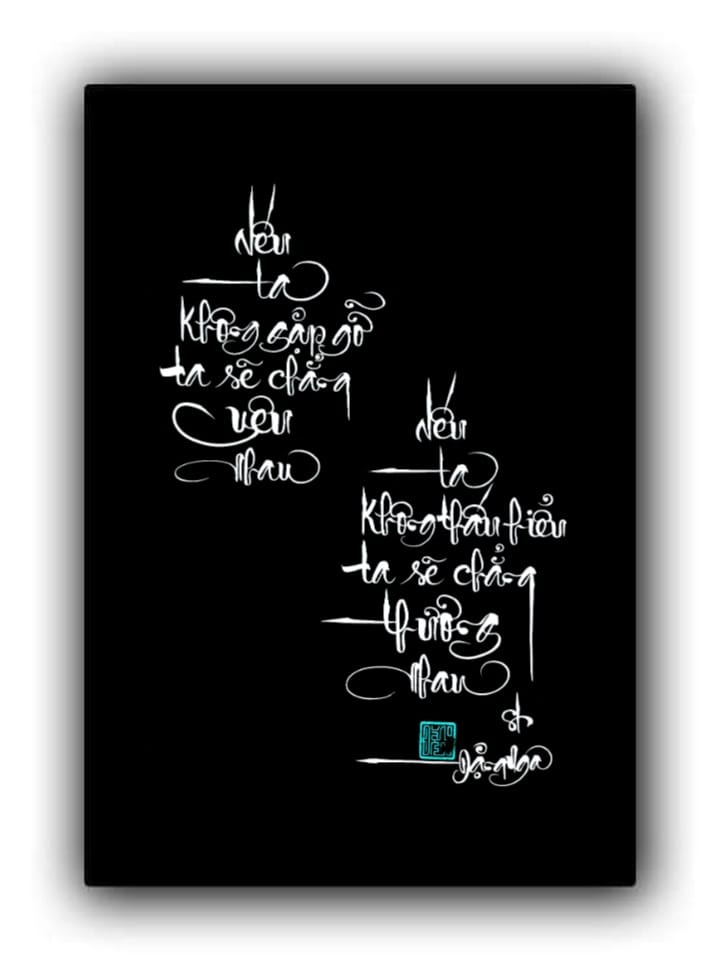 Nếu
ta
không gặp gỡ
ta sẽ chẳng
yêu
nhau
Nếu
ta
không thấu hiểu
ta sẽ chẳng
thương
nhau
st